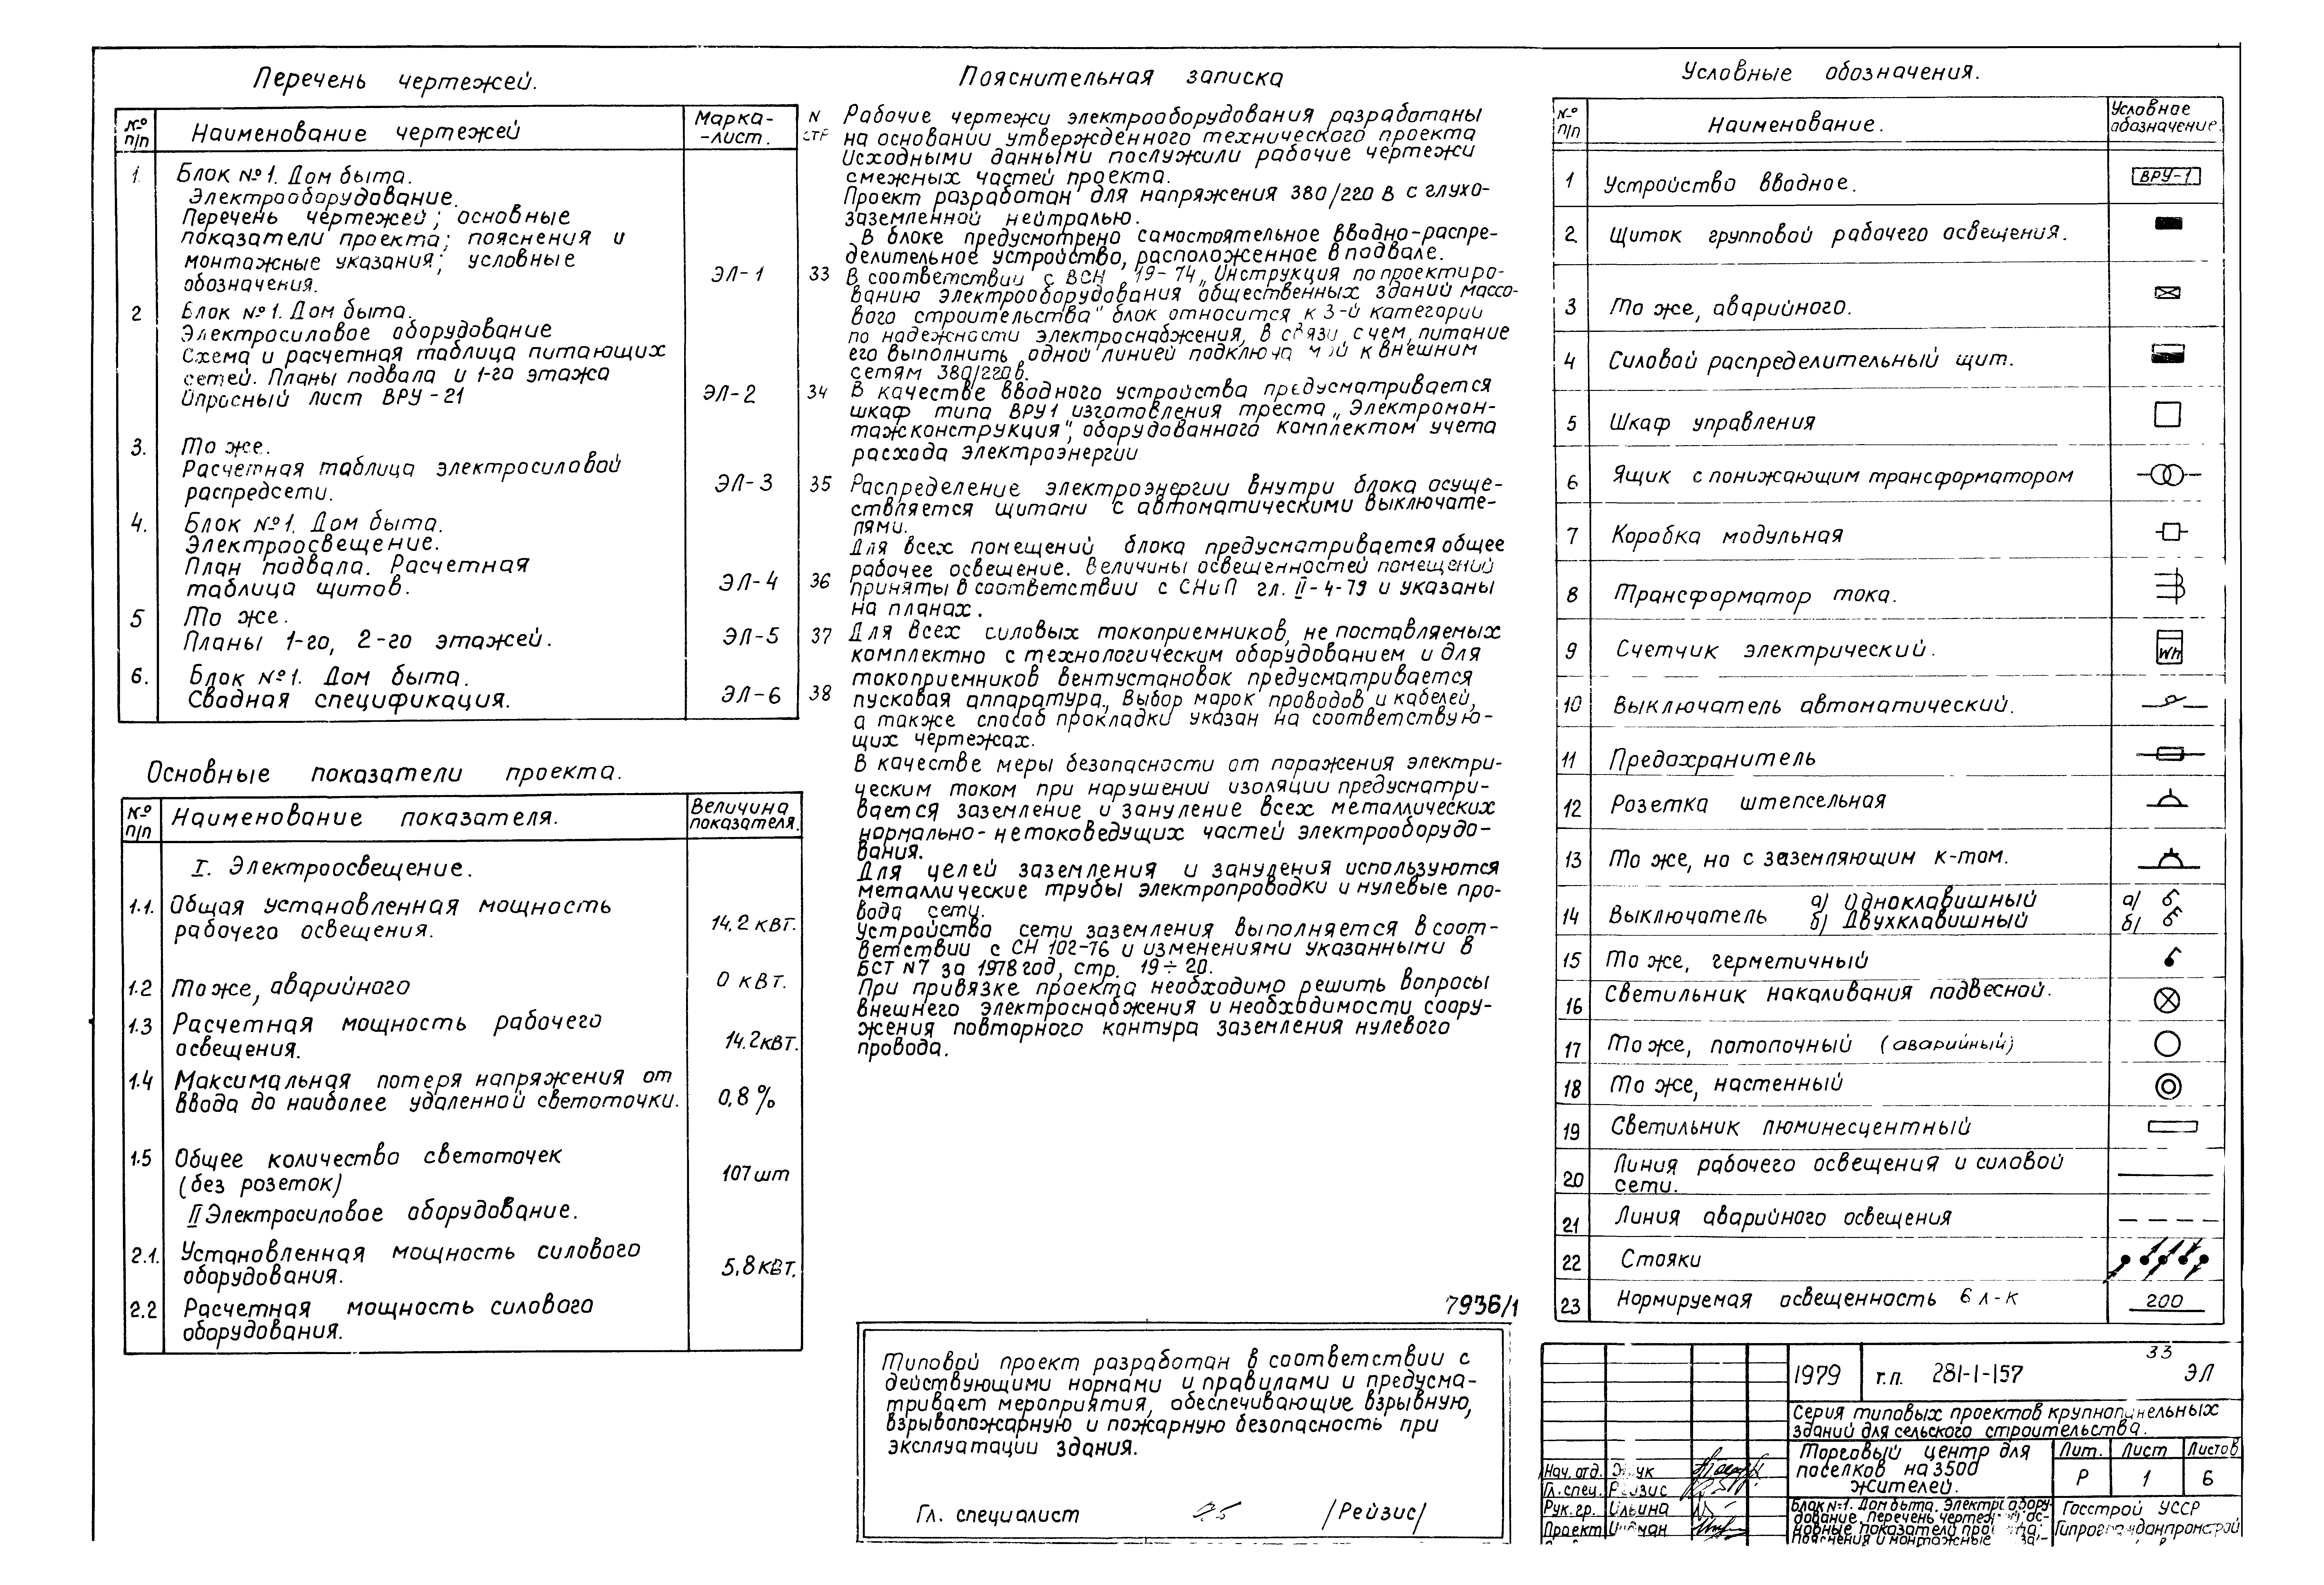 Перечень чертежей.
№ п/п
Наименование чертежей
Марка-
-лист.
N
стр
1.
Блок №1. Дом быта.
Электрооборудование.
Перечень чертежей; основные
показатели проекта; пояснения и
монтажные указания; условные
обозначения.
ЭЛ-1
33
2
Блок №1. Дом быта.
Электросиловое оборудование
Схема и расчетная таблица питающих
сетей. Планы подвала и 1-го этажа
Опросный лист ВРУ-21
ЭЛ-2
34
3.
То же.
Расчетная таблица электросиловой
распредсети.
ЭЛ-3
35
4.
Блок №1. Дом быта.
Электроосвещение.
План подвала. Расчетная
таблица щитов.
ЭЛ-4
36
5
То же.
Планы 1-го, 2-го этажей.
ЭЛ-5
37
6.
Блок №1. Дом быта.
Сводная спецификация.
ЭЛ-6
38
Основные показатели проекта.
№ п/п
Наименование показателя.
Величина
показателя.
I. Электроосвещение.
1.1.
Общая установленная мощность
рабочего освещения.
14,2 квт.
1.2
То же, аварийного
0 квт.
1.3
Расчетная мощность рабочего
освещения.
14.2квт.
1.4
Максимальная потеря напряжения от
ввода до наиболее удаленной светоточки.
0,8%
1.5
Общее количество светоточек
(без розеток)
107 шт
II Электросиловое оборудование.
2.1.
Установленная мощность силового
оборудования.
5,8квт.
2.2
Расчетная мощность силового
оборудования.
Пояснительная записка
Рабочие чертежи электрооборудования разработаны
на основании утвержденного технического проекта
Исходными данными послужили рабочие чертежи
смежных частей проекта.
Проект разработан для напряжения 380/220 в с глухо-
заземленной нейтралью.
В блоке предусмотрено самостоятельное вводно-распре-
делительное устройство, расположенное в подвале.
В соответствии с ВСН 19-74 „Инструкция по проектиро-
ванию электрооборудования общественных зданий массо-
вого строительства" блок относится к 3-й категории
по надежности электроснабжения, в связи с чем, питание
его выполнить одной линией к внешним
сетям 380/220в.
В качестве вводного устройства предусматривается
шкаф типа ВРУ1 изготовления треста „Электромон-
тажконструкция", оборудованного комплектом учета
расхода электроэнергии
Распределение электроэнергии внутри блока осуще-
ствляется щитами с автоматическими выключате-
лями.
Для всех помещений блока предусматривается общее
рабочее освещение. Величины освещенностей помещений
приняты в соответствии с СНиП гл. II-4-79 и указаны
на планах.
Для всех силовых токоприемников, не поставляемых
комплектно с технологическим оборудованием и для
токоприемников вентустановок предусматривается
пусковая аппаратура. Выбор марок проводов и кабелей,
а также способ прокладки указан на соответствую-
щих чертежах.
В качестве меры безопасности от поражения электри-
ческим током при нарушении изоляции предусматри-
вается заземление и зануление всех металлических
нормально-нетоковедущих частей электрооборудо-
вания.
Для целей заземления и зануления используются
металлические трубы электропроводки и нулевые про-
вода сети.
Устройство сети заземления выполняется в соот-
ветствии с СН 102-76 и изменениями указанными в
БСТ N7 за 1978 год, стр. 19÷20.
При привязке проекта необходимо решить вопросы
внешнего электроснабжения и необходимости соору-
жения повторного контура заземления нулевого
провода.
7936/1
Типовой проект разработан в соответствии с
действующими нормами и правилами и предусма-
тривает мероприятия, обеспечивающие взрывную,
взрывопожарную и пожарную безопасность при
эксплуатации здания.
Гл. специалист /Рейзис/
Условные обозначения.
№ п/п
Наименование.
Условное
обозначение.
1
Устройство вводное.
ВРУ-1
2
Щиток групповой рабочего освещения.
3
То же, аварийного.
4
Силовой распределительный щит.
5
Шкаф управления
6
Ящик с понижающим трансформатором
7
Коробка модульная
8
Трансформатор тока.
9
Счетчик электрический.
Wh
10
Выключатель автоматический.
11
Предохранитель
12
Розетка штепсельная
13
То же, но с заземляющим к-том.
14
Выключатель
а) Одноклавишный
б) Двухклавишный
а)
б)
15
То же, герметичный
16
Светильник накаливания подвесной.
17
То же, потолочный (аварийный)
18
То же, настенный
19
Светильник люминесцентный
20
Линия рабочего освещения и силовой
сети.
21
Линия аварийного освещения
22
Стояки
23
Нормируемая освещенность в л-к
200
33
1979
т.п. 281-1-157
ЭЛ
Серия типовых проектов крупнопанельных
зданий для сельского строительства.
Торговый центр для
поселков на 3500
жителей.
Лит.
Лист
Листов
Р
1
6
Нач. отд.
Гл. спец. Рейзис
Рук. гр. Ильина
Проект
Блок №1. Дом быта. Электрообору-
дование. Перечень чертежей, ос-
новные показатели проекта;
пояснения и монтажные
Госстрой УССР
Гипрогражданпромстрой